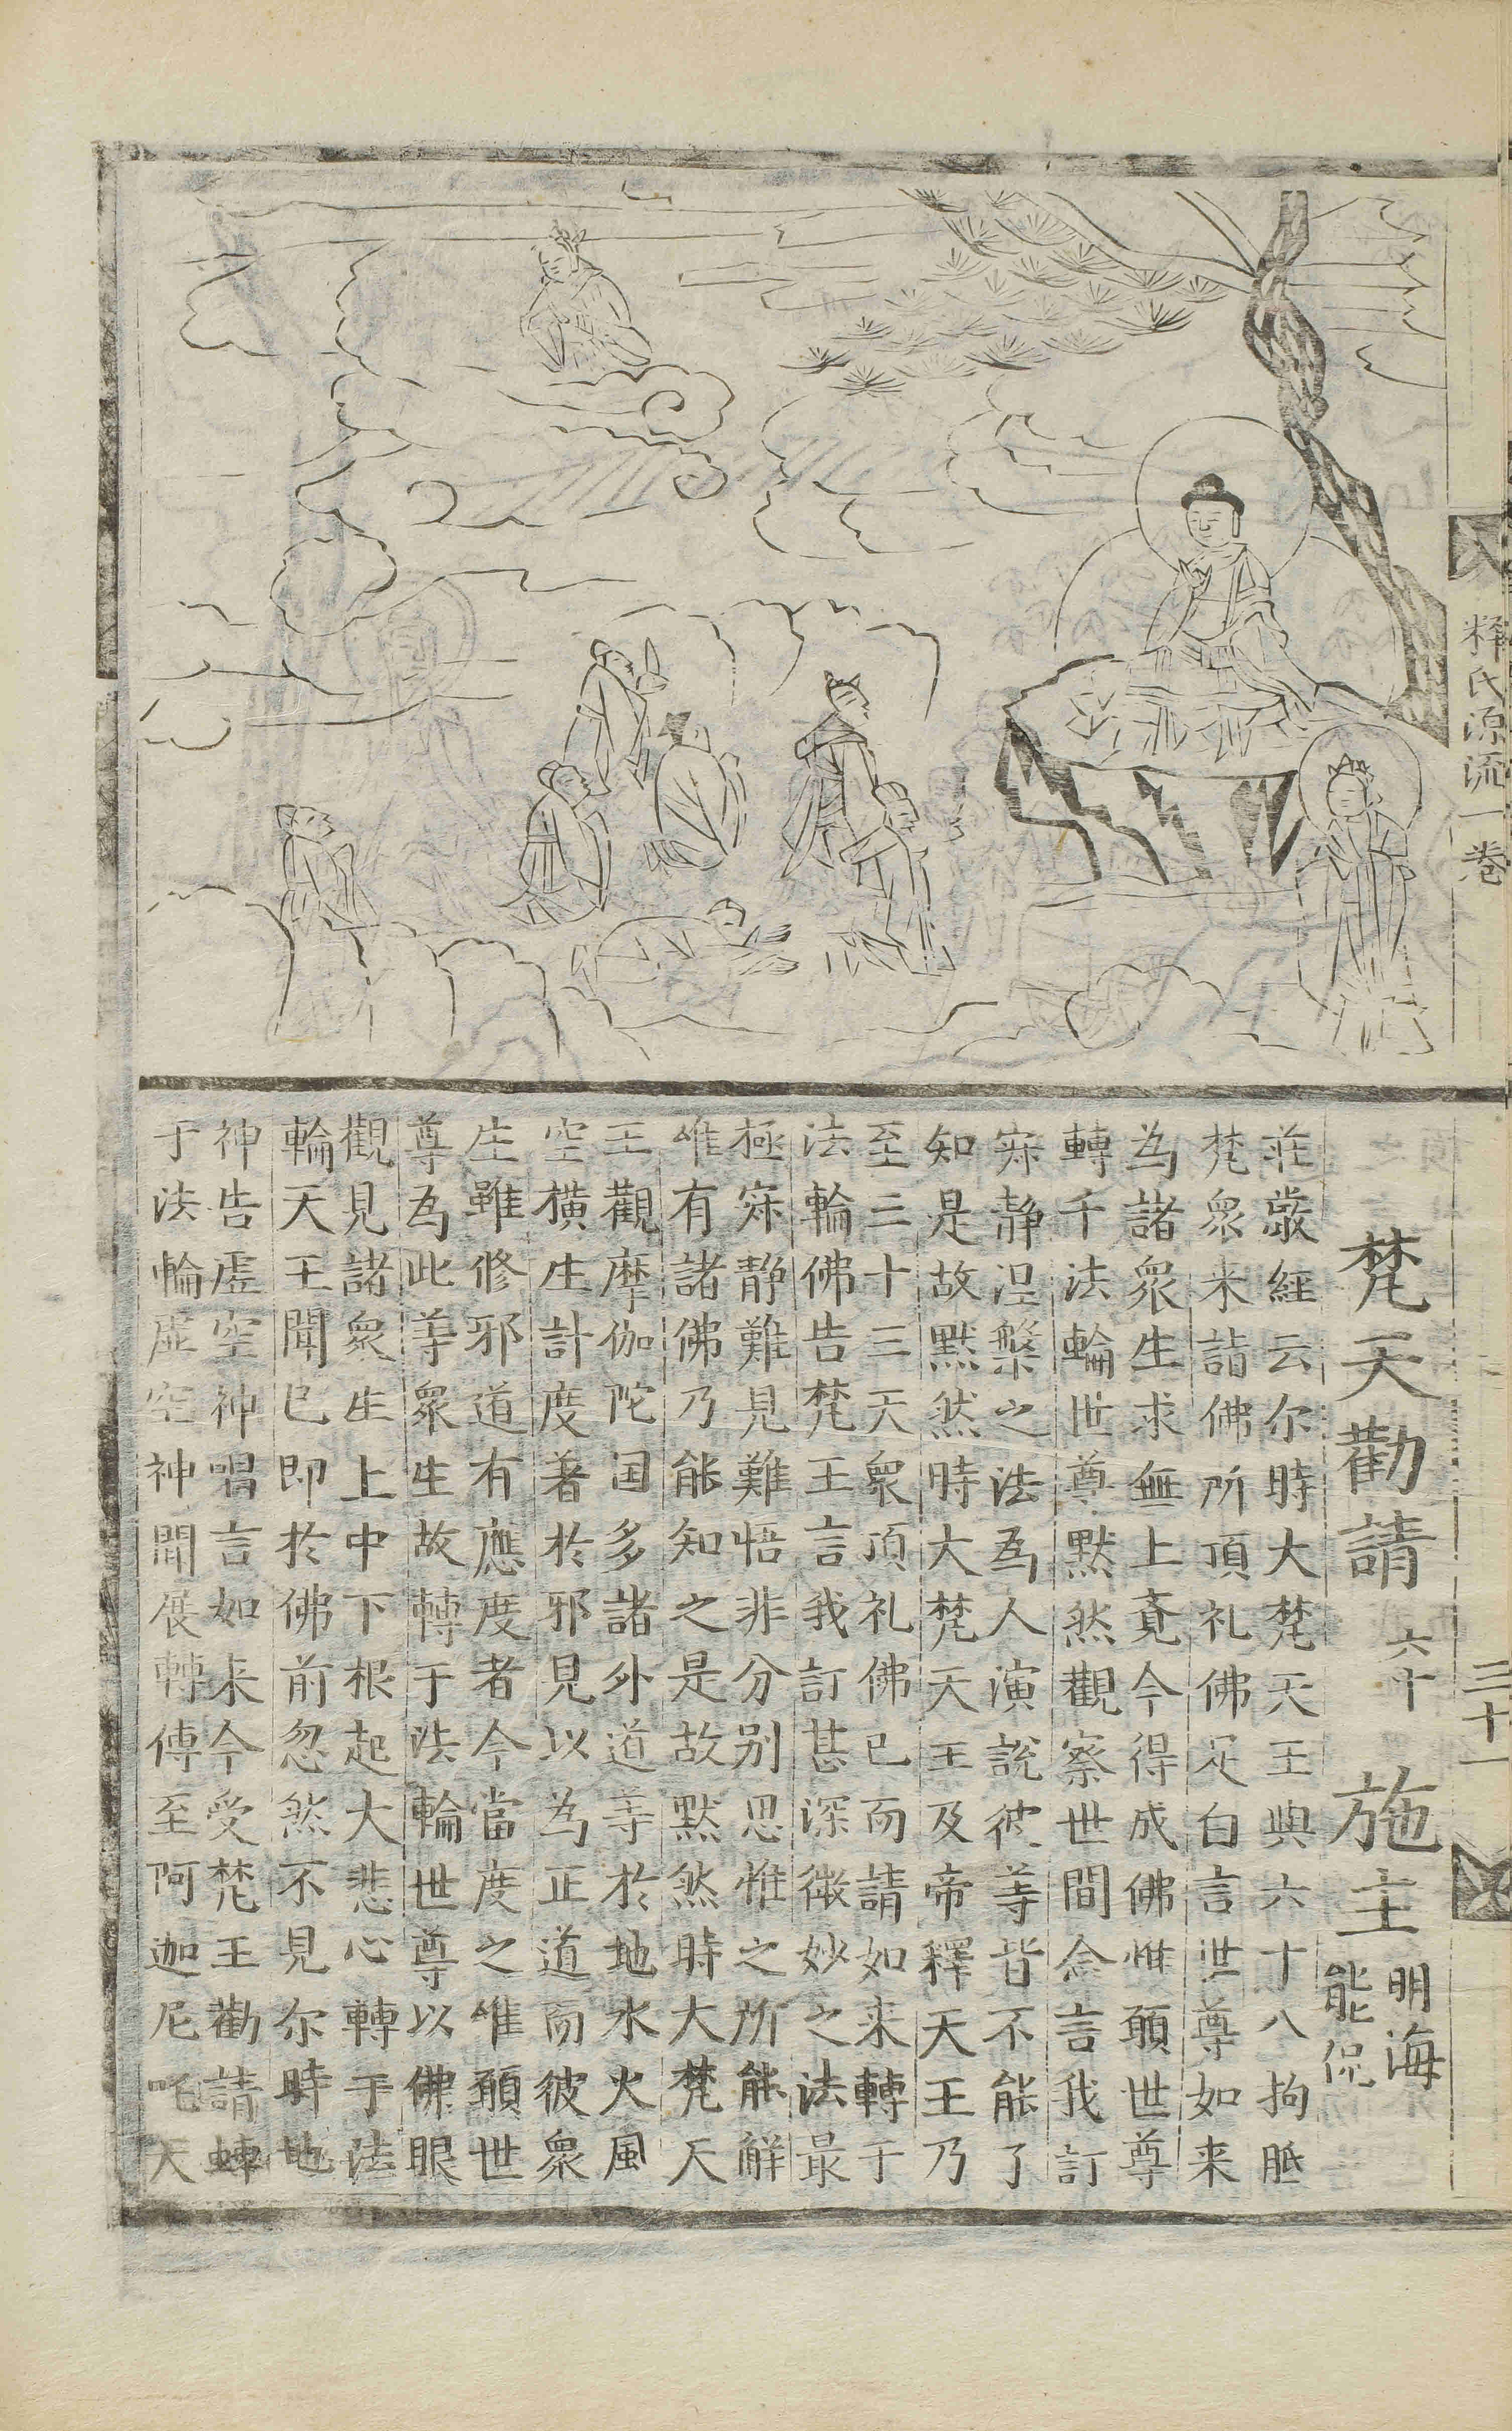 釋氏源流一卷
三十一
梵天勸請 六十 施主 明海
能侃
莊嚴經云尔時大梵天王與六十八拘胝
梵眾来詣佛所頂礼佛足白言世尊如来
為諸眾生求無上覔今得成佛惟願世尊
轉千法輪世尊默然觀察世間念言我訂
寂静涅槃之法為人演說彼等皆不能了
知是故默然時大梵天王及帝釋天王乃
至三十三天眾頂礼佛已而請如来轉于
法輪佛告梵王言我訂甚深微妙之法最
極寂静難見難悟非分别思惟之所能解
唯有諸佛乃能知之是故默然時大梵天
王觀摩伽陀国多諸外道等於地水火風
空横生計度著於邪見以為正道而彼眾
生雖修邪道有應度者今當度之唯願世
尊為此等眾生故轉于法輪世尊以佛眼
觀見諸眾生上中下根起大悲心轉于法
輪天王聞已即於佛前忽然不見尔時地
神告虚空神唱言如来今受梵王勸請轉
于法輪虚空神聞展轉傳至阿迦尼吒天